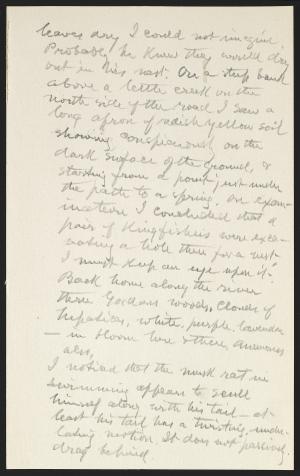 leaves dry I could not imagine.
Probably he knew they would dry
out in his nest. On a steep bank
above a little creek on the
north side of the road I saw a
long apron of radish yellow soil
showing conspicuously on the
dark surface of the ground, &
starting from a point just under
the path to a spring. On exam-
ination I concluded that a
pair of Kingfishers were exca-
vating a hole there for a nest.
I must keep an eye upon it.
Back home along the river
there Gordons woods, clouds of
hepaticas, white, purple, lavender
— in bloom here & there, anemones
also,
I noticed that the musk rat in
swimming appears to scull
himself along with his tail — at
least his tail has a twisting, undu-
lating motion. It does not passively
drag behind.